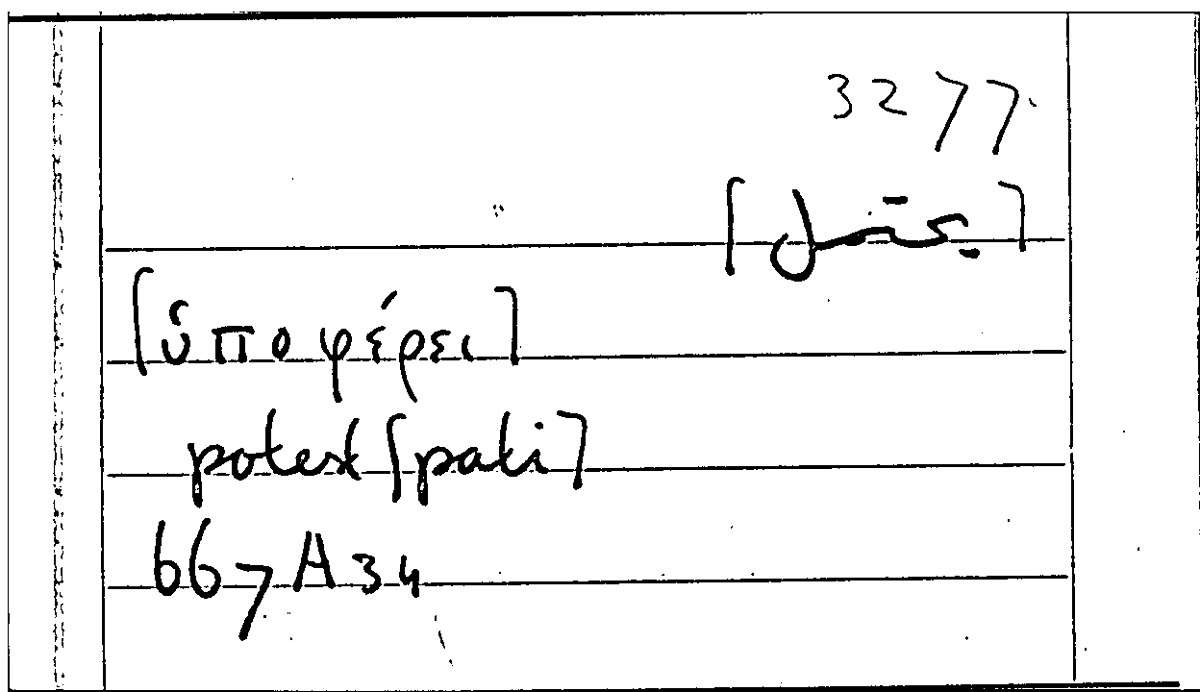 3277
[يحتمل]
[ὑποφέρει]
potest [pati]
667 A 34